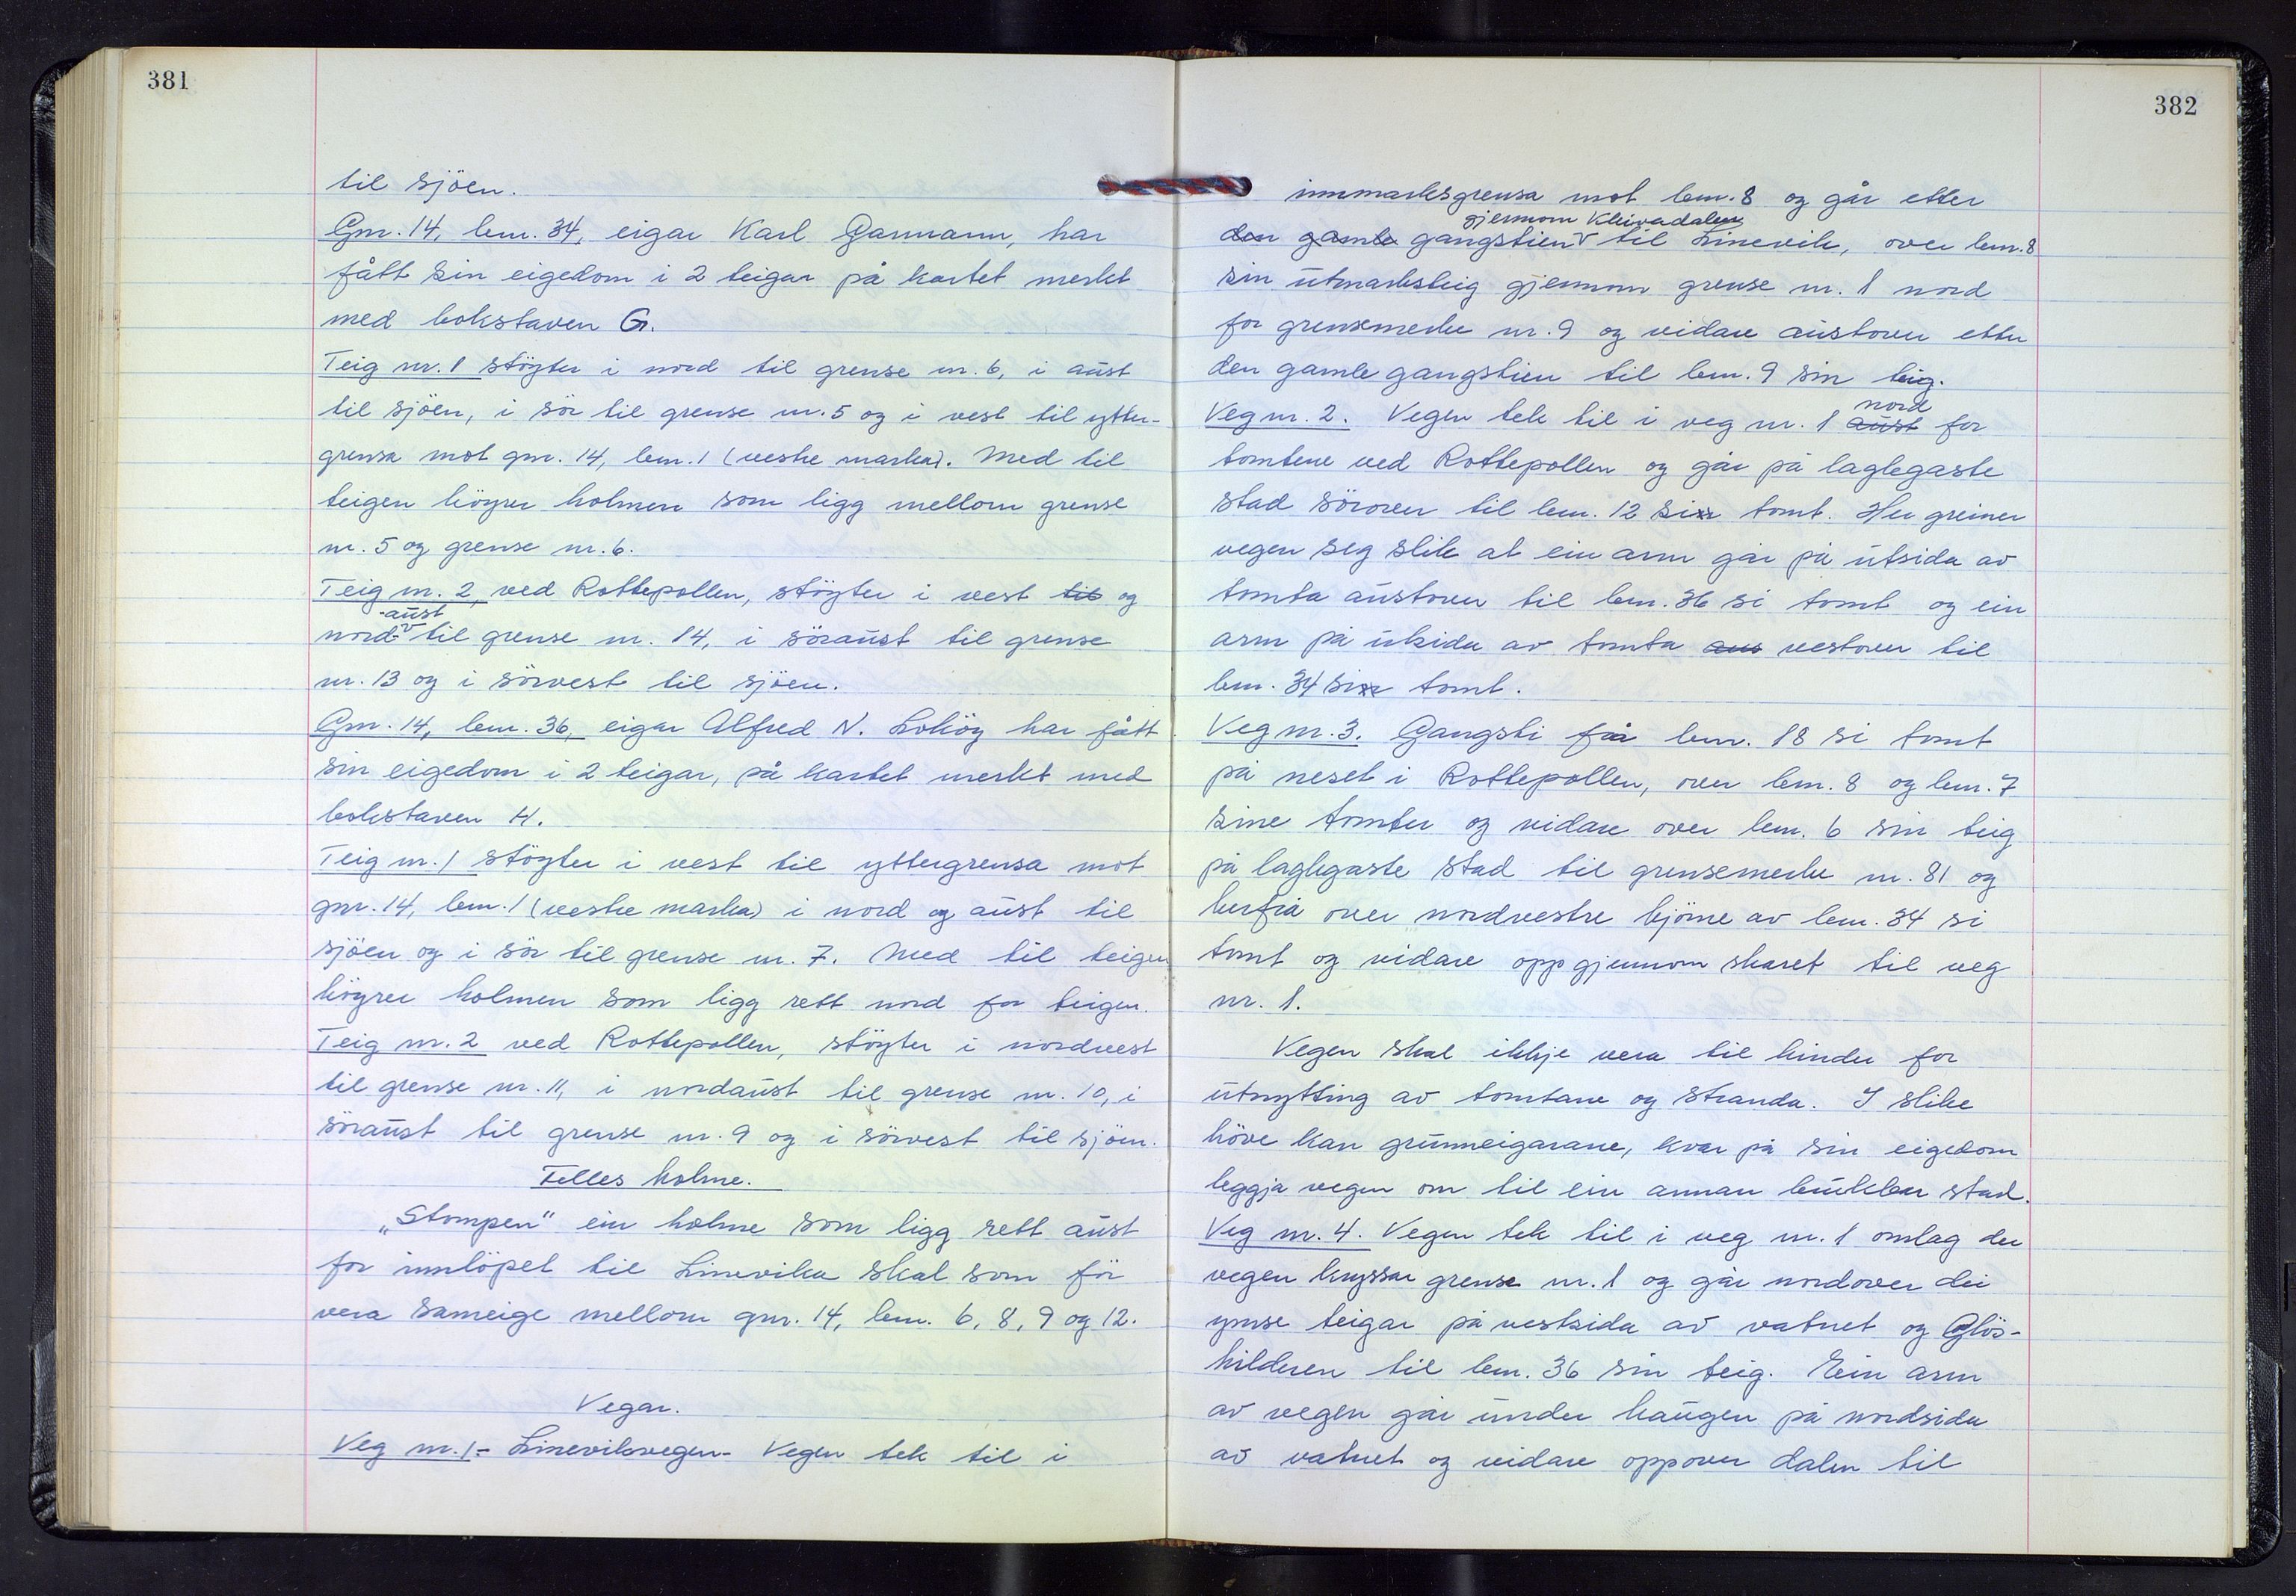 381
til sjöen.
Gnr. 14, bnr. 34, eigar Karl Garmann, har
fått sin eigedom i 2 teigar på kartet merkt
med bokstaven G.
Teig nr. 1 stöyter i nord til grense nr. 6, i aust
til sjöen, i sör til grense nr. 5 og i vest til ytter-
grensa mot gnr. 14, bnr. 1 (vestre marka). Med til
teigen höyrer holmen som ligg mellom grense
nr. 5 og grense nr. 6.
Teig nr. 2, ved Rottepollen, stöyter i vest til og
-aust
nord- til grense nr. 14, i söraust til grense
nr. 13 og i sörvest til sjöen.
Gnr. 14, bnr. 36, eigar Alfred N. Lohöy har fått
sin eigedom i 2 teigar, på kartet merkt med
bokstaven H.
Teig nr. 1 stöyter i vest til yttergrensa mot
gnr. 14, bnr. 1 (vestre marka) i nord og aust til
sjöen og i sör til grense nr. 7. Med til teigen
höyrer holmen som ligg rett nord for teigen.
Teig nr. 2 ved Rottepollen, stöyter i nordvest
til grense nr. 11, i nordaust til grense nr. 10, i
söraust til grense nr. 9 og i sörvest til sjöen.
Felles holme.
"Stompen" ein holme som ligg rett aust
for innlöpet til Linevika skal som för
vera sameige mellom gnr. 14, bnr. 6, 8, 9 og 12.
Vegar.
Veg nr. 1.- Linevikvegen- Vegen tek til i
382
innmarksgrensa mot bnr. 8 og går etter
gjennom Kleivadalen
den gamle gangstien til Linevik, over bnr. 8
sin utmarksteig gjennom grense nr. 1 nord
for grensemerke nr. 9 og vidare austover etter
den gamle gangstien til bnr. 9 sin teig.
nord
Veg nr. 2. Vegen tek til i veg nr. 1 aust for
tomtene ved Rottepollen og går på laglegaste
stad sörover til bnr. 12 sin tomt. Her greiner
vegen seg slik at ein arm går på utsida av
tomta austover til bnr. 36 si tomt og ein
arm på utsida av tomta aus vestover til
bnr. 34 sin tomt.
Veg nr. 3. Gangsti frå bnr. 18 si tomt
på neset i Rottepollen, over bnr. 8 og bnr. 7
sine tomter og vidare over bnr. 6 sin teig
på laglegaste stad til grensemerke nr. 81 og
herfrå over nordvestre hjörne av bnr. 34 si
tomt og vidare opp gjennom skaret til veg
nr. 1.
Vegen skal ikkje vera til hinder for
utnytting av tomtane og stranda. I slike
höve kan grunneigarane, kvar på sin eigedom
leggja vegen om til ein annan brukbar stad.
Veg nr. 4. Vegen tek til i veg nr. 1 omlag der
vegen kryssar grense nr. 1 og går nordover dei
ymse teigar på vestsida av vatnet og Glös-
kilderen til bnr. 36 sin teig. Ein arm
av vegen går under haugen på nordsida
av vatnet og vidare oppover dalen til